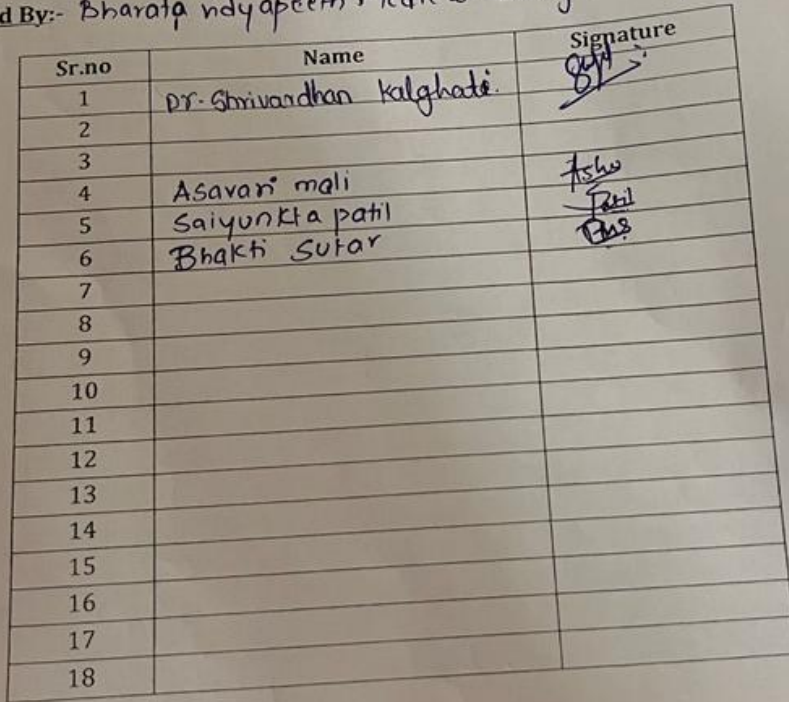 d By:- Bharata
Sr.no Name Signature
1 Dr. Shrivardhan Kalghatei.
2
3
4 Asavari mali Asho
5 Saiyunkta patil Patil
6 Bhakti Sutar
7
8
9
10
11
12
13
14
15
16
17
18